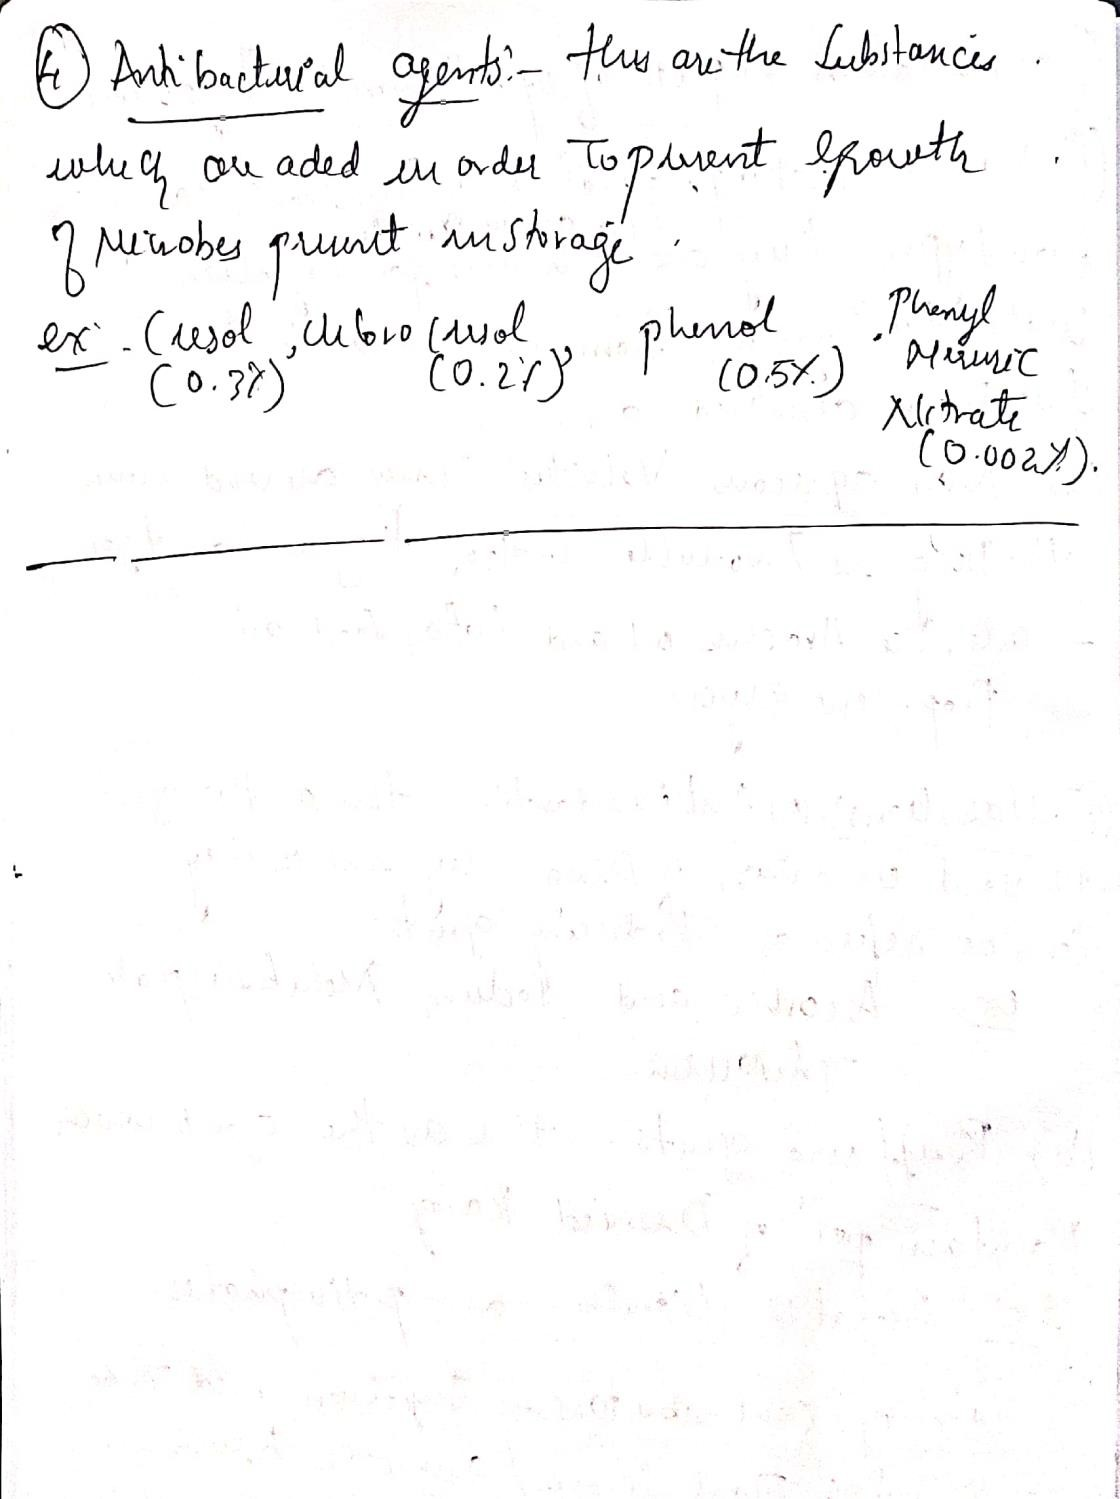 ④ Antibacterial agents:- this are the Substances.
which are aded in order To prevent Growth
of Microbes present in Storage.
ex:- Cresol, chloro cresol, phenol, Phenyl
(0.3%) (0.2%) (0.5%) Mercuric
Nitrate
(0.002%).